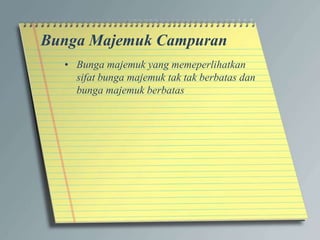 Bunga Majemuk Campuran
• Bunga majemuk yang memeperlihatkan
sifat bunga majemuk tak tak berbatas dan
bunga majemuk berbatas